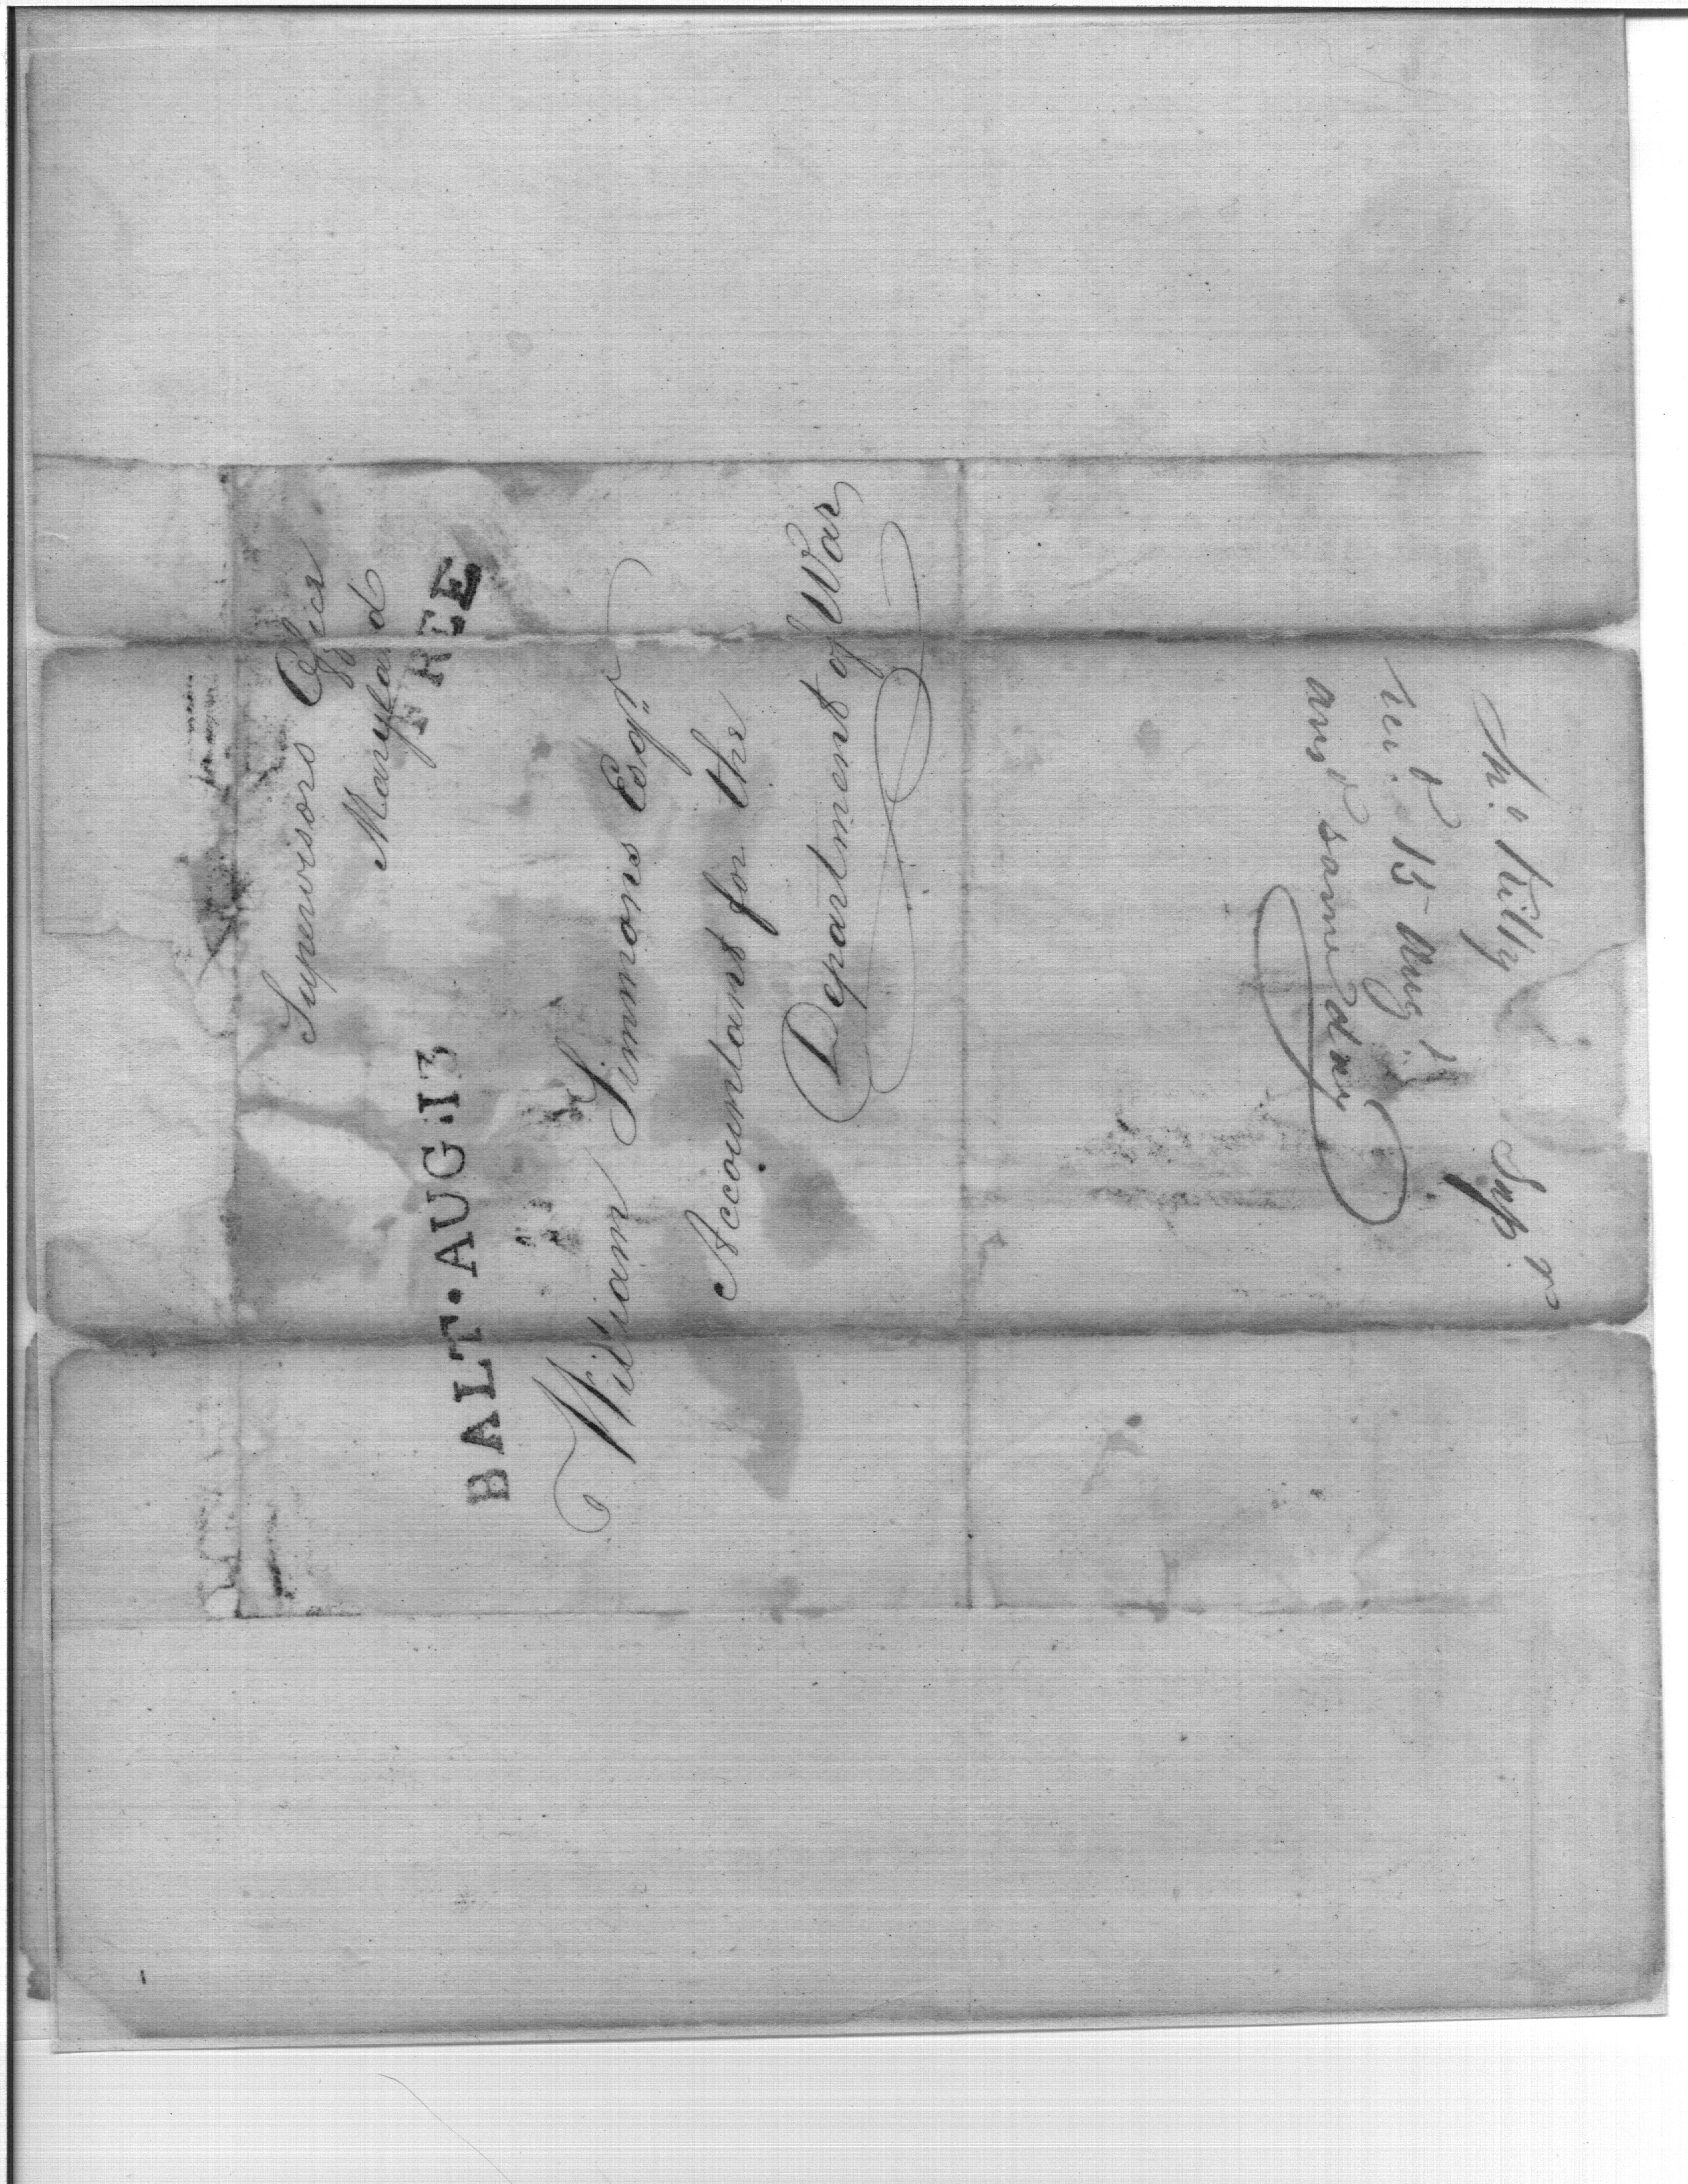 Supervisors Office
Maryland
FREE
BALT•AUG•13
William Simmons Esqr
Accountant for the
Department of War
Kilty Supr
recd 15 Aug
ansd same day